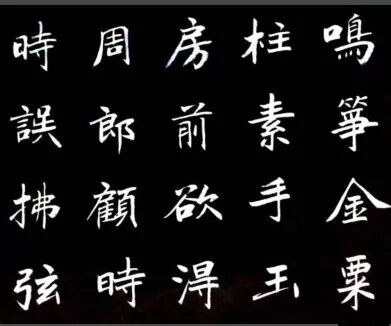 鳴箏金粟
柱素手玉
房前欲得
周郎顧時
時誤拂弦